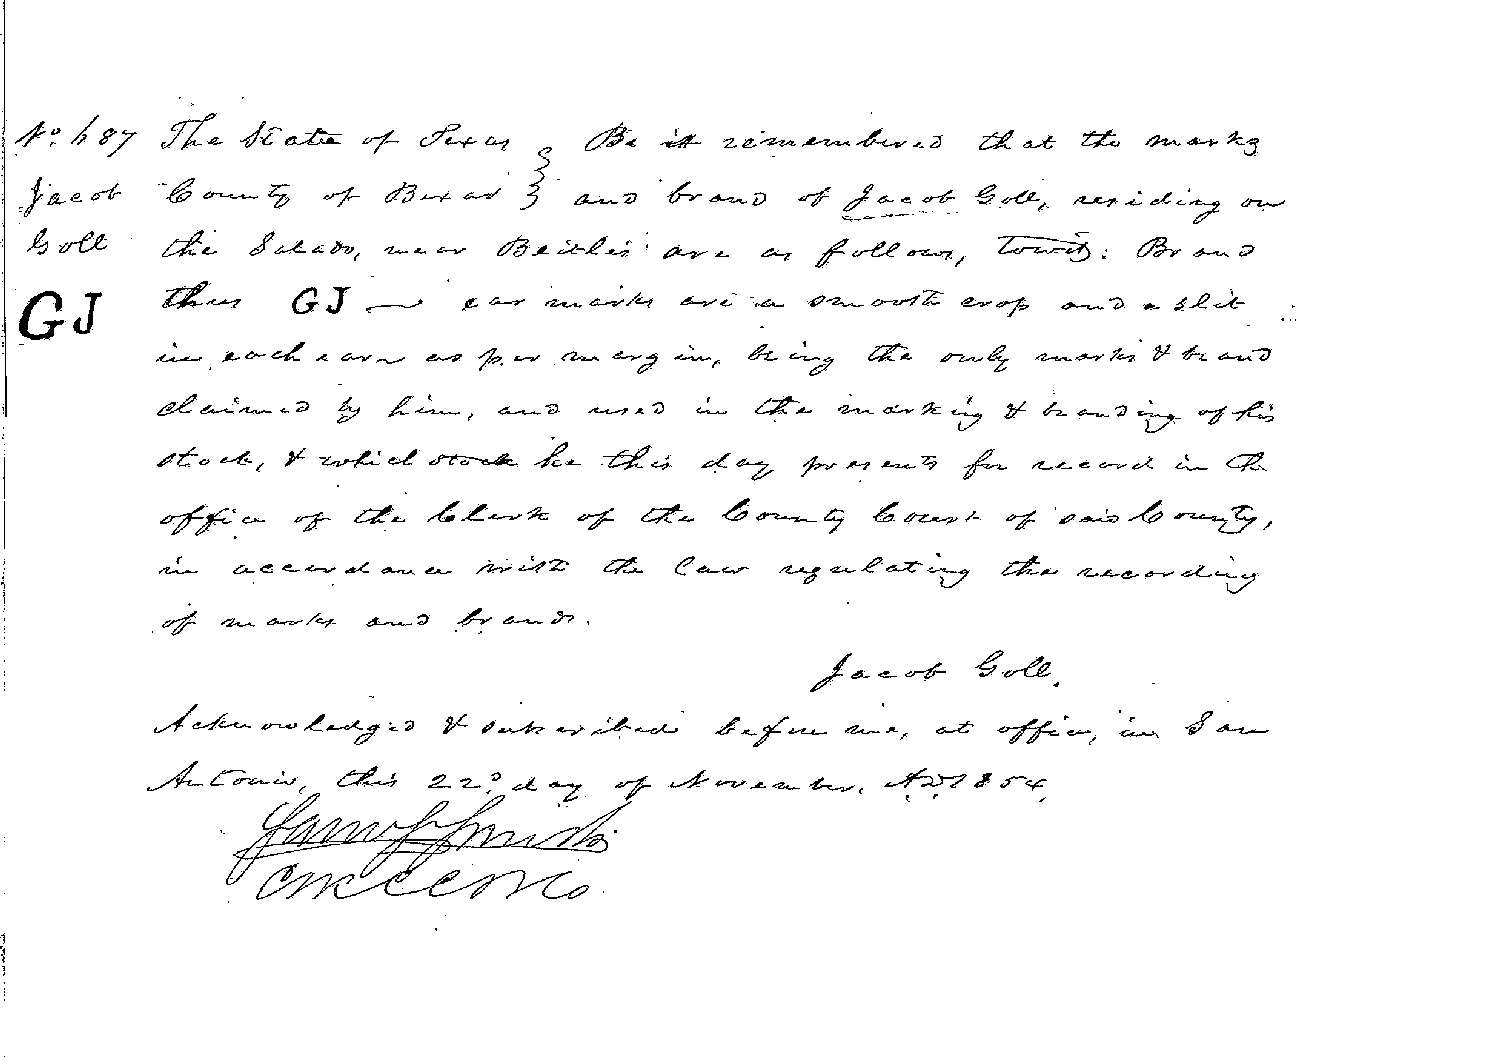 No. 687
Jacob
Goll
GJ
The State of Texas } Be it remembered that the marks
County of Bexar } and brand of Jacob Goll, residing on
the Salado, near Beitles' are as follows, towit: Brand
thus GJ — ear marks are a smooth crop and a slit
in each ear as per margin, being the only marks & brand
claimed by him, and used in the marking & branding of his
stock, & which stock he this day presents for record in the
office of the Clerk of the County Court of said County,
in accordance with the law regulating the recording
of marks and brands.
Jacob Goll.
Acknowledged & subscribed before me, at office, in San
Antonio, this 22d. day of November, A.D. 1854.